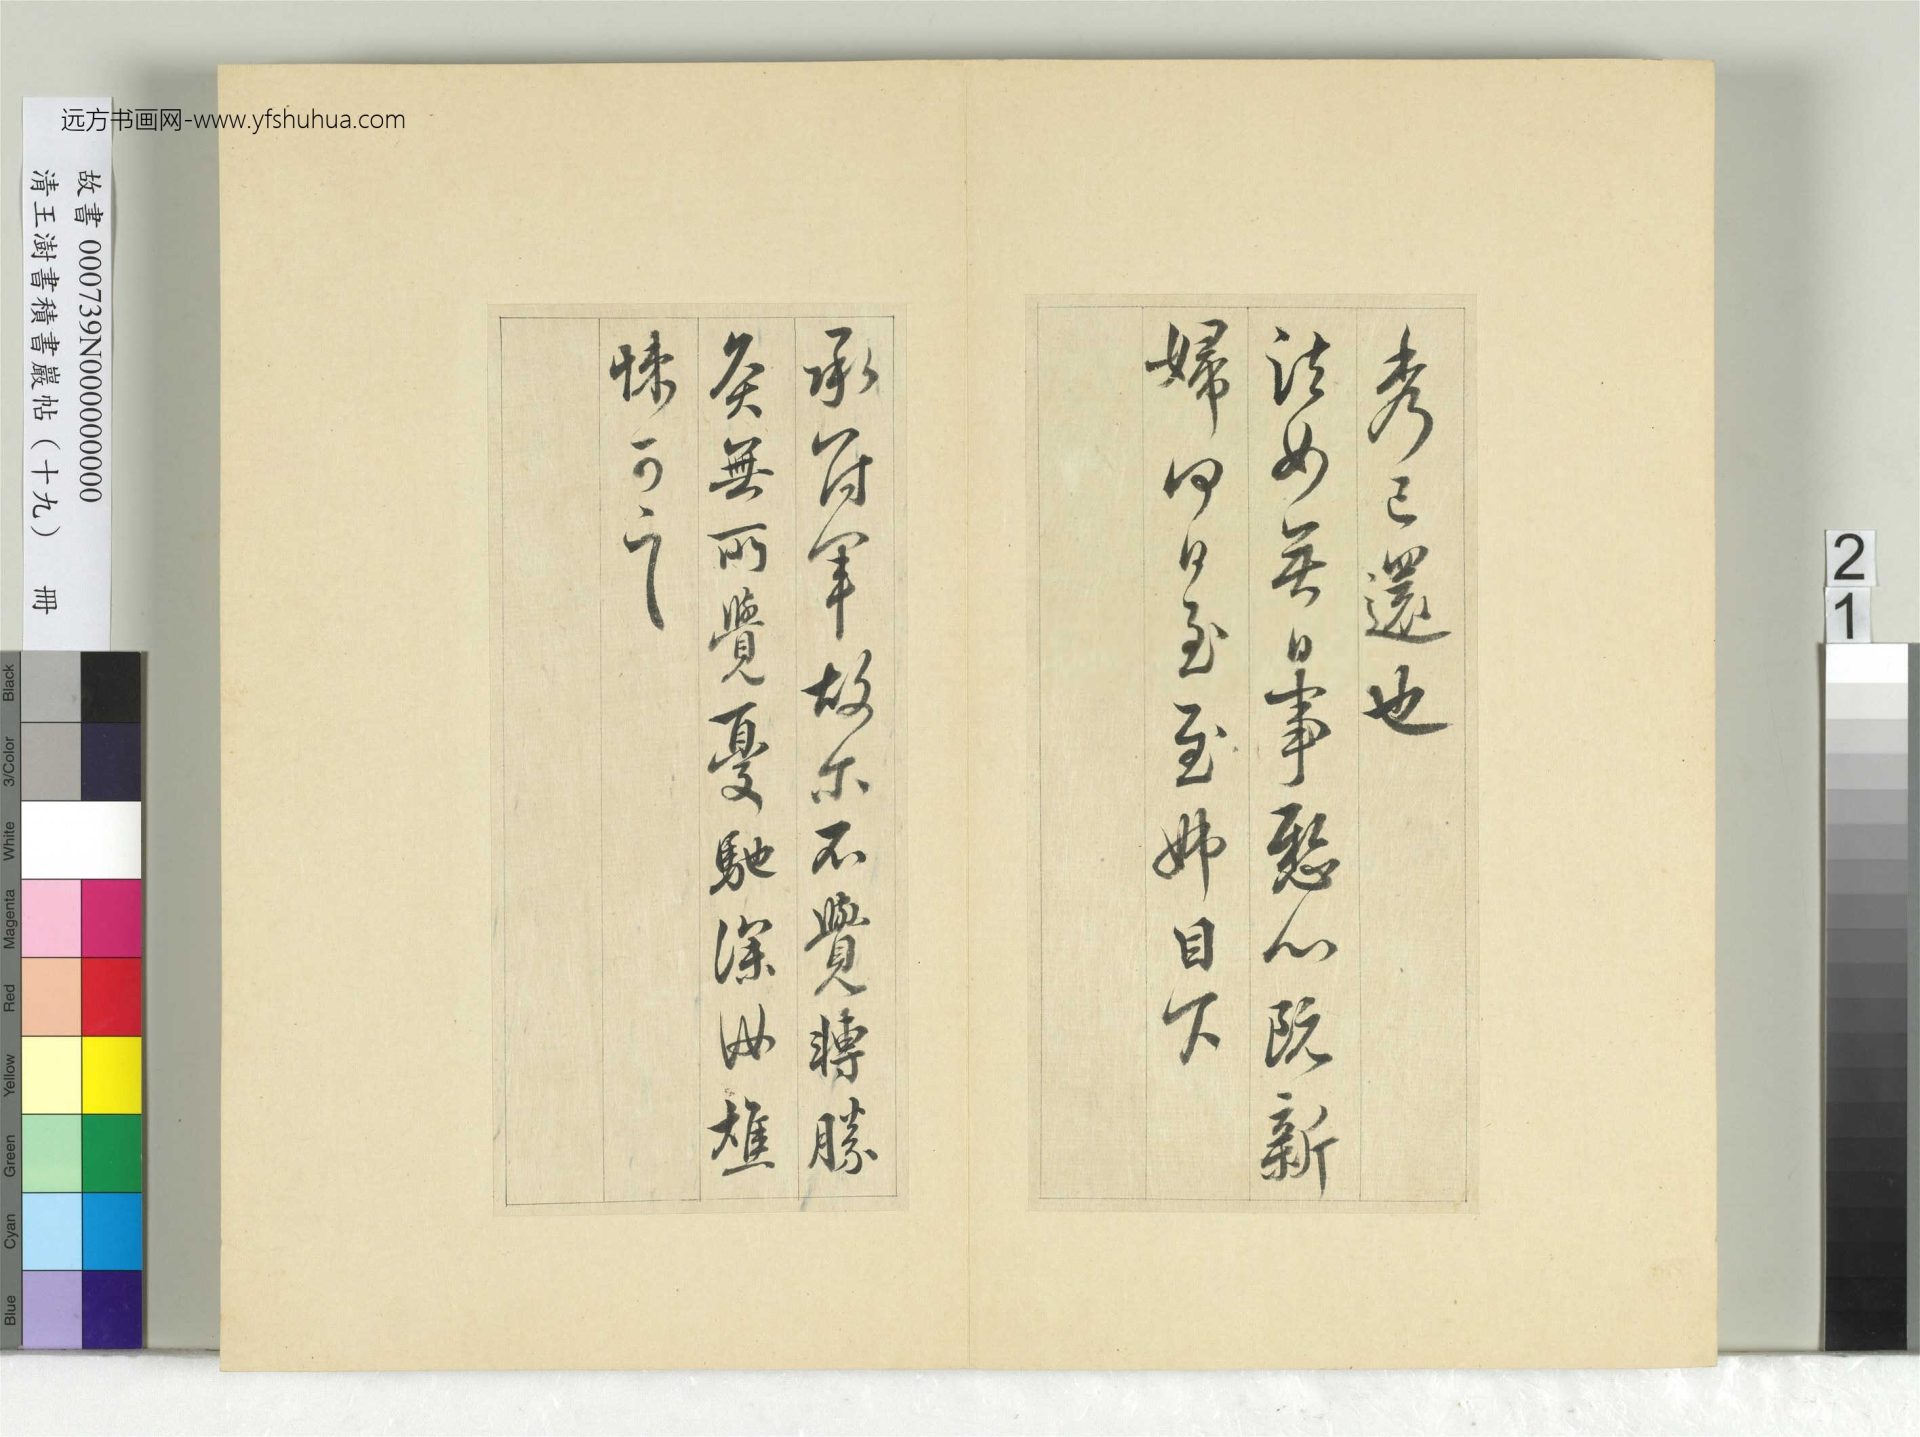 远方书画网-www.yfshuhua.com
故書 000739N000000000
清王澍書積書巖帖(十九) 冊
秀已還也
諸女無日事懸心阮新
婦何日至至姊目下
承冠軍故尔不覺轉勝
灸無所覺憂馳深汝燋
悚可言
2
1
Black
3/Color
White
Magenta
Red
Yellow
Green
Cyan
Blue